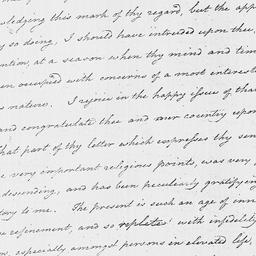 ledging this mark of thy regard, but the app
y so doing, I should have intruded upon thee,
ention, at a season when thy mind and time
een occupied with concerns of a most interest
s nature. I rejoice in the happy issue of that
and congratulate thee and our country upon
that part of thy letter which expresses thy sen
e very important religious points, was very
descending, and has been peculiarly gratifying
tory to me. The present is such an age of inn
e refinement, and so replete with infidelity
s, especially amongst persons in elevated life,